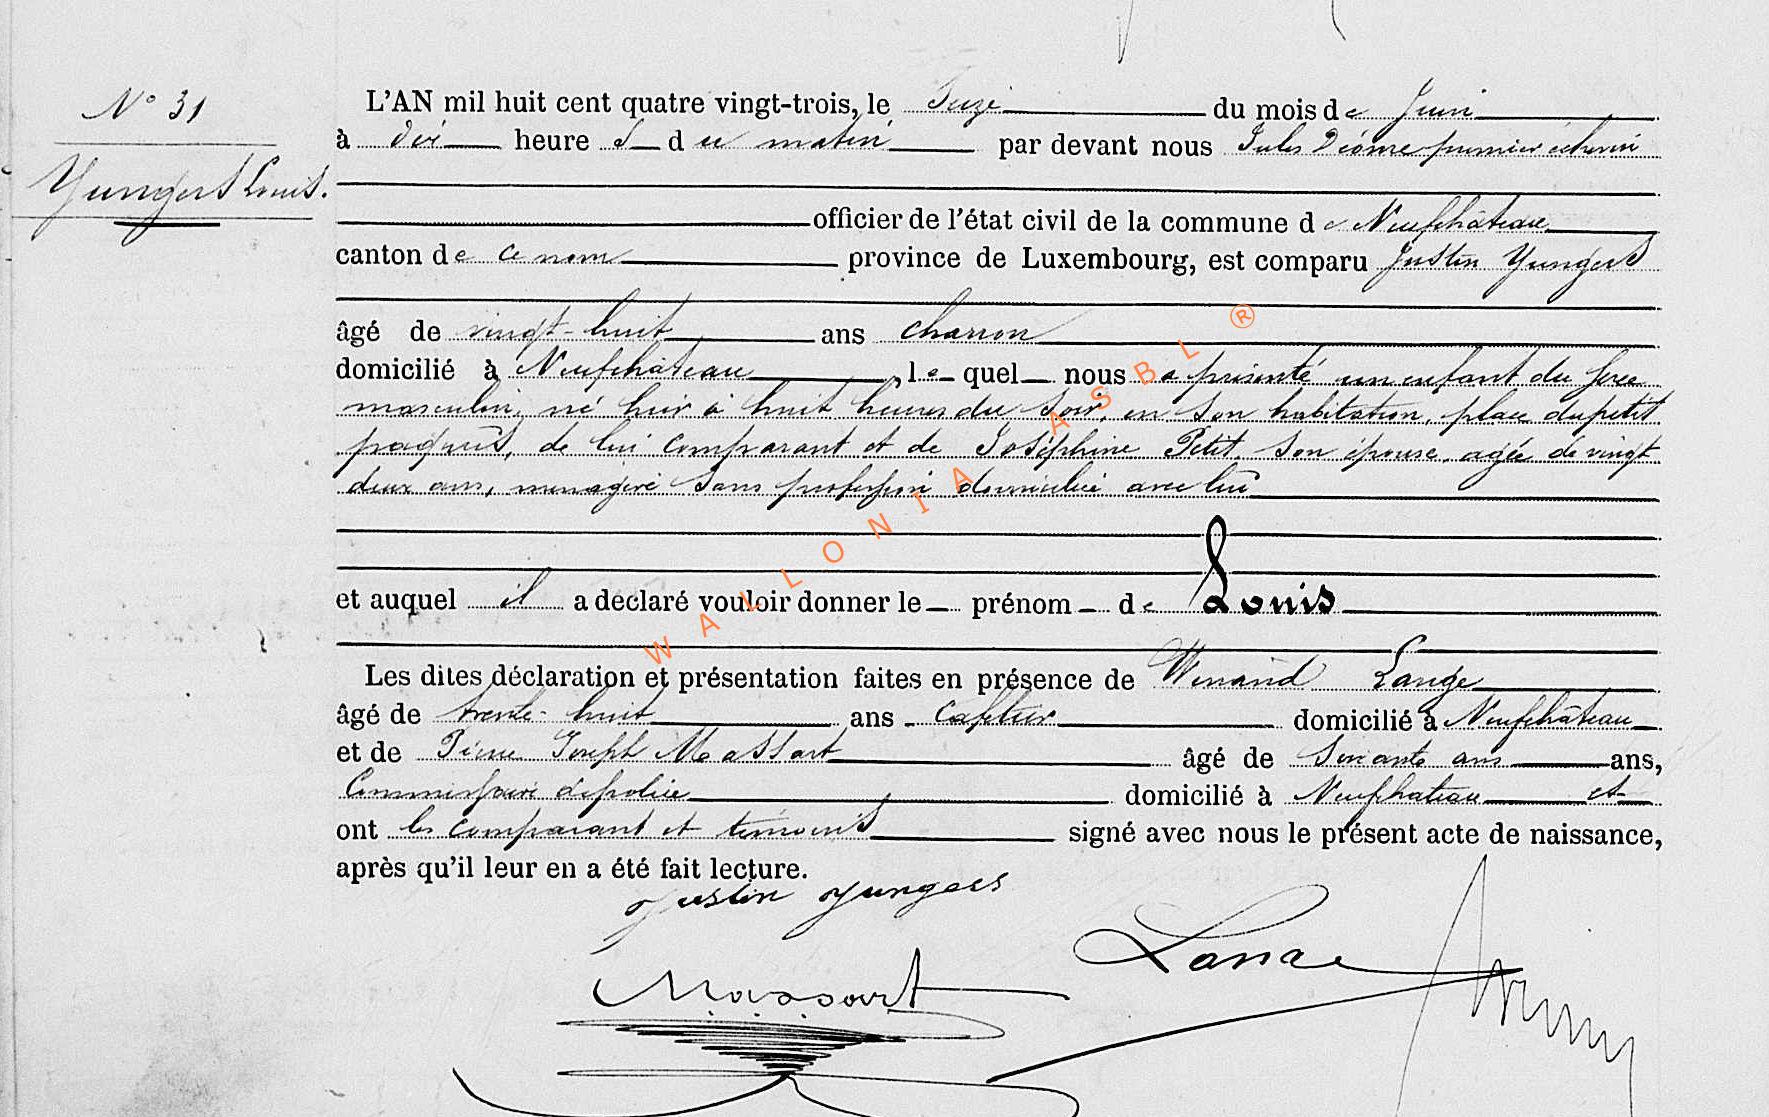 N° 31
Yungers Louis.
L'AN mil huit cent quatre vingt-trois, le Seize du mois de Juin
à dix heure s du matin par devant nous Jules premier échevin
officier de l'état civil de la commune de Neufchâteau
canton de ce nom province de Luxembourg, est comparu Justin Yungers
âgé de vingt-huit ans charron
domicilié à Neufchâteau, le quel nous a présenté un enfant du sexe
masculin, né hier à huit heures du soir, en son habitation, place du petit
de lui comparant et de Joséphine Petit, son épouse, agée de vingt
deux ans, menagère sans profession domiciliée avec lui
et auquel il a declaré vouloir donner le prénom de Louis
Les dites déclaration et présentation faites en présence de Winand Lange
âgé de trente-huit ans cafetier domicilié à Neufchâteau
et de Pierre Joseph Massart âgé de soixante ans ans,
Commissaire de police domicilié à Neufchateau et
ont les comparant et témoins signé avec nous le présent acte de naissance,
après qu'il leur en a été fait lecture.
Justin Yungers
Lange
Massart
WALLONIA ASBL ®